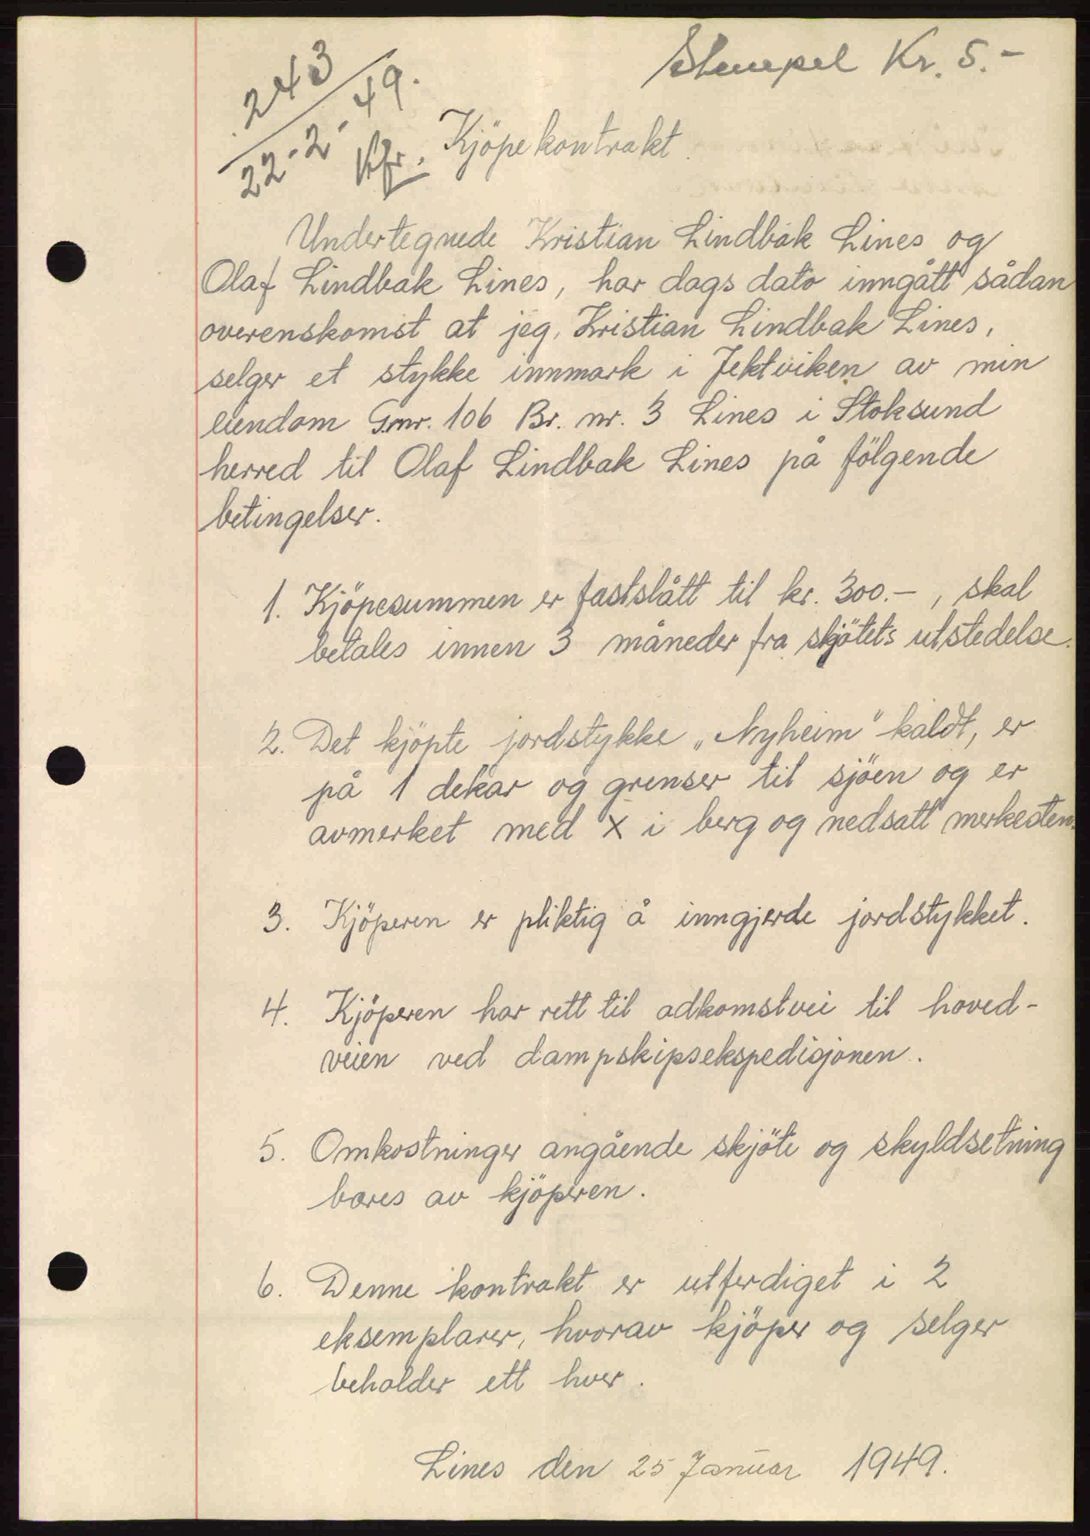 243
22-2-49.
Kfr.
Stempel Kr. 5.-
Kjöpekontrakt.
Undertegnede Kristian Lindbak Lines og
Olaf Lindbak Lines, har dags dato inngått sådan
overenskomst at jeg, Kristian Lindbak Lines,
selger et stykke innmark i Jektviken av min
eiendom Gmr. 106 Br. nr. 3 Lines i Stoksund
herred til Olaf Lindbak Lines på fölgende
betingelser.
1. Kjöpesummen er fastslått til kr. 300.-, skal
betales innen 3 måneder fra skjötets utstedelse.
2. Det kjöpte jordstykke „Nyheim" kaldt, er
på 1 dekar og grenser til sjöen og er
avmerket med X i berg og nedsatt merkesten.
3. Kjöperen er pliktig å inngjerde jordstykket.
4. Kjöperen har rett til adkomstvei til hoved-
veien ved dampskipsekspedisjonen.
5. Omkostninger angående skjöte og skyldsetning
bæres av kjöperen.
6. Denne kontrakt er utferdiget i 2
eksemplarer, hvorav kjöper og selger
beholder ett hver.
Lines den 25 Januar 1949.